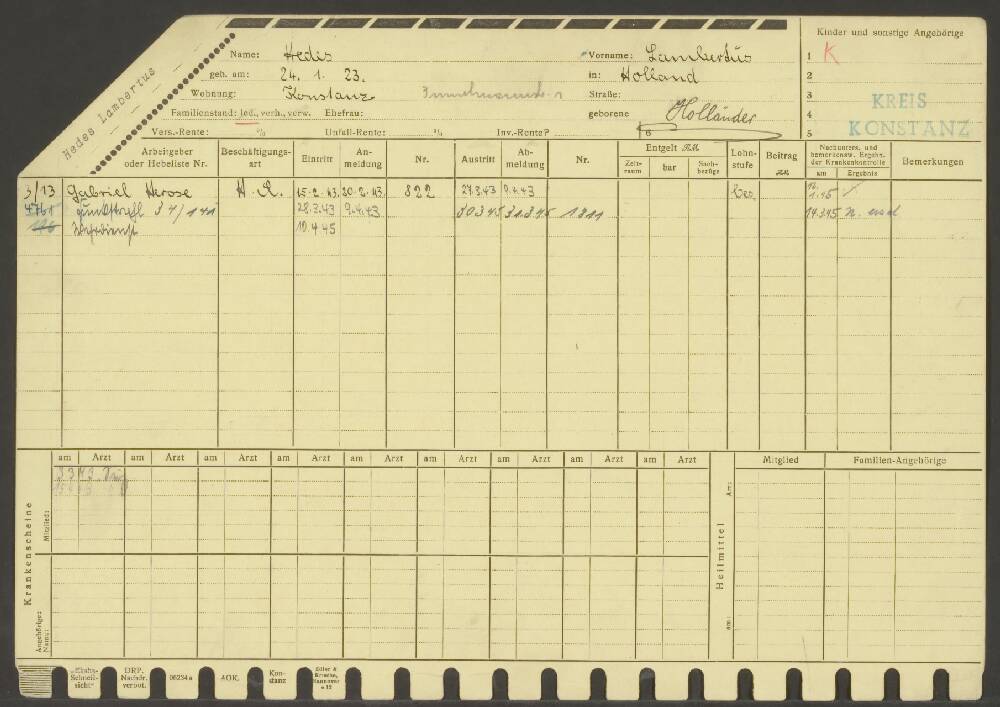 Hedes Lambertus
Name: Hedes Vorname: Lambertus
geb. am: 24. 1. 23. in: Holland
Wohnung: Konstanz Straße:
Familienstand: led., verh., verw. Ehefrau: geborene Holländer
Vers.-Rente: % Unfall-Rente: % Inv.-Rente?
Kinder und sonstige Angehörige
1 K
2
3
4
5
6
KREIS
KONSTANZ
Arbeitgeber oder Hebeliste Nr. Beschäftigungsart Eintritt Anmeldung Nr. Austritt Abmeldung Nr. Entgelt RM Zeitraum bar Sachbezüge Lohnstufe Beitrag RM Nachunters. und bemerkensw. Ergebn. der Krankenkontrolle am Ergebnis Bemerkungen
3/13 Gabriel Herose H. A. 15.2.43. 20.2.43. 822 27.3.43 9.4.43
4761 34/141 28.3.43 9.4.43 30345 31.3.45 1311 14.3.45
10.4.45
Krankenscheine
Mitglied:
am Arzt am Arzt am Arzt am Arzt am Arzt am Arzt am Arzt am Arzt am Arzt
3 3 43
Angehörige: Name:
Heilmittel
Mitglied Familien-Angehörige
Am:
am:
"Ekaha-Schnellsicht" DRP. Nachdr. verbot. 06234a AOK. Konstanz Edler & Krische, Hannover